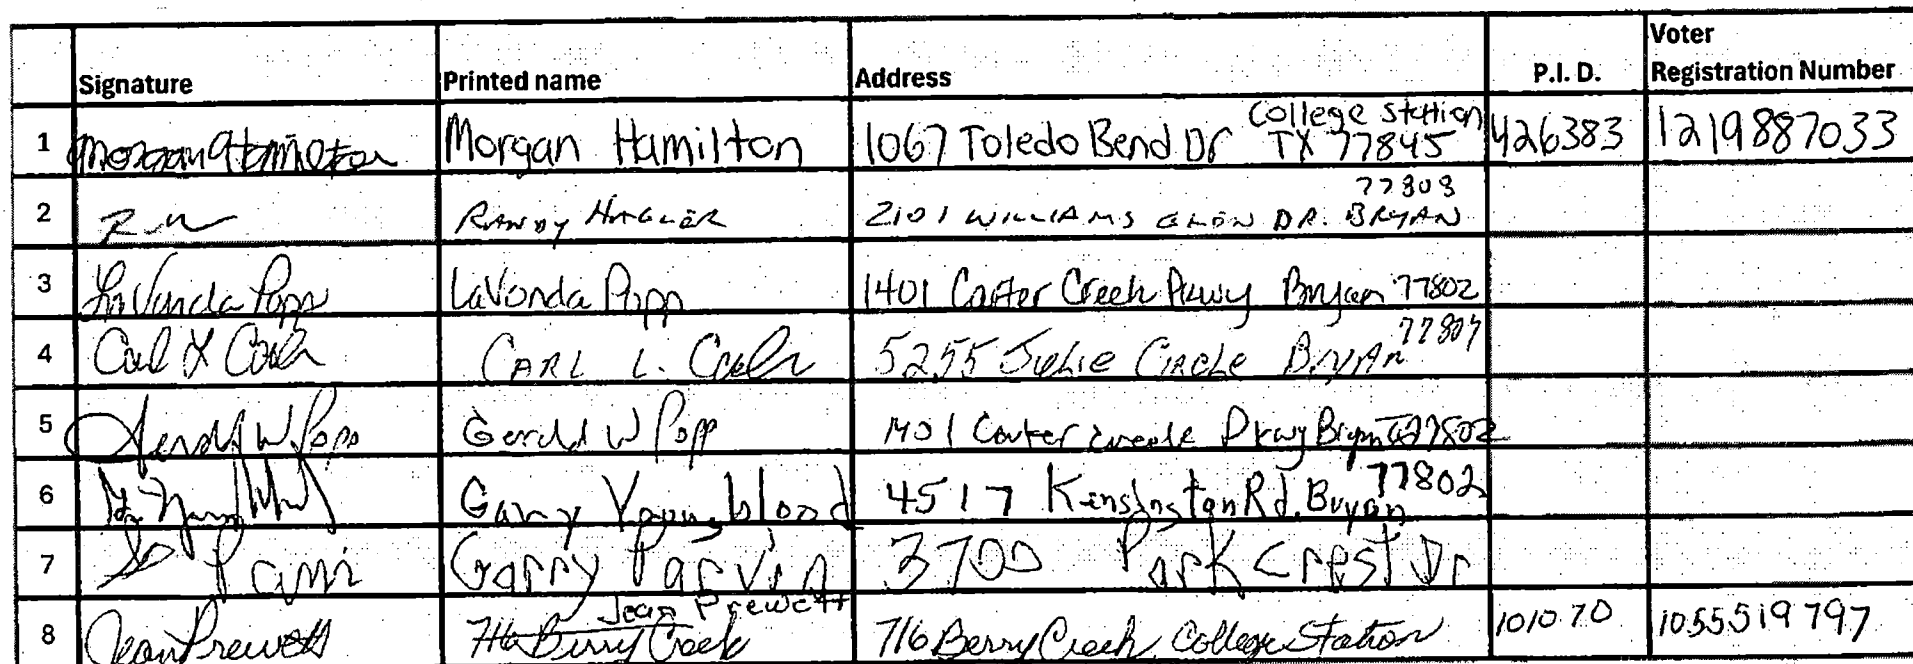 Signature Printed name Address P.I. D. Voter Registration Number
1 Morgan Hamilton Morgan Hamilton 1067 Toledo Bend Dr College Station TX 77845 426383 1219887033
2 RANDY HAGLER 2101 WILLIAMS GLEN DR. BRYAN 77808
3 LaVonda Popp LaVonda Popp 1401 Carter Creek Pkwy Bryan 77802
4 CARL L. 5255 Julie CIRCLE BRYAN
5 Gerald W. Popp Gerald W Popp 1401 Carter Creek Pkwy Bryan 77802
6 Gary Youngblood 4517 Kensington Rd. Bryan 77802
7 Garry Parvin 3700 Park Crest Dr
8 Jean Prewett Jean Prewett 716 Berry Creek 716 Berry Creek College Station 101070 1055519797